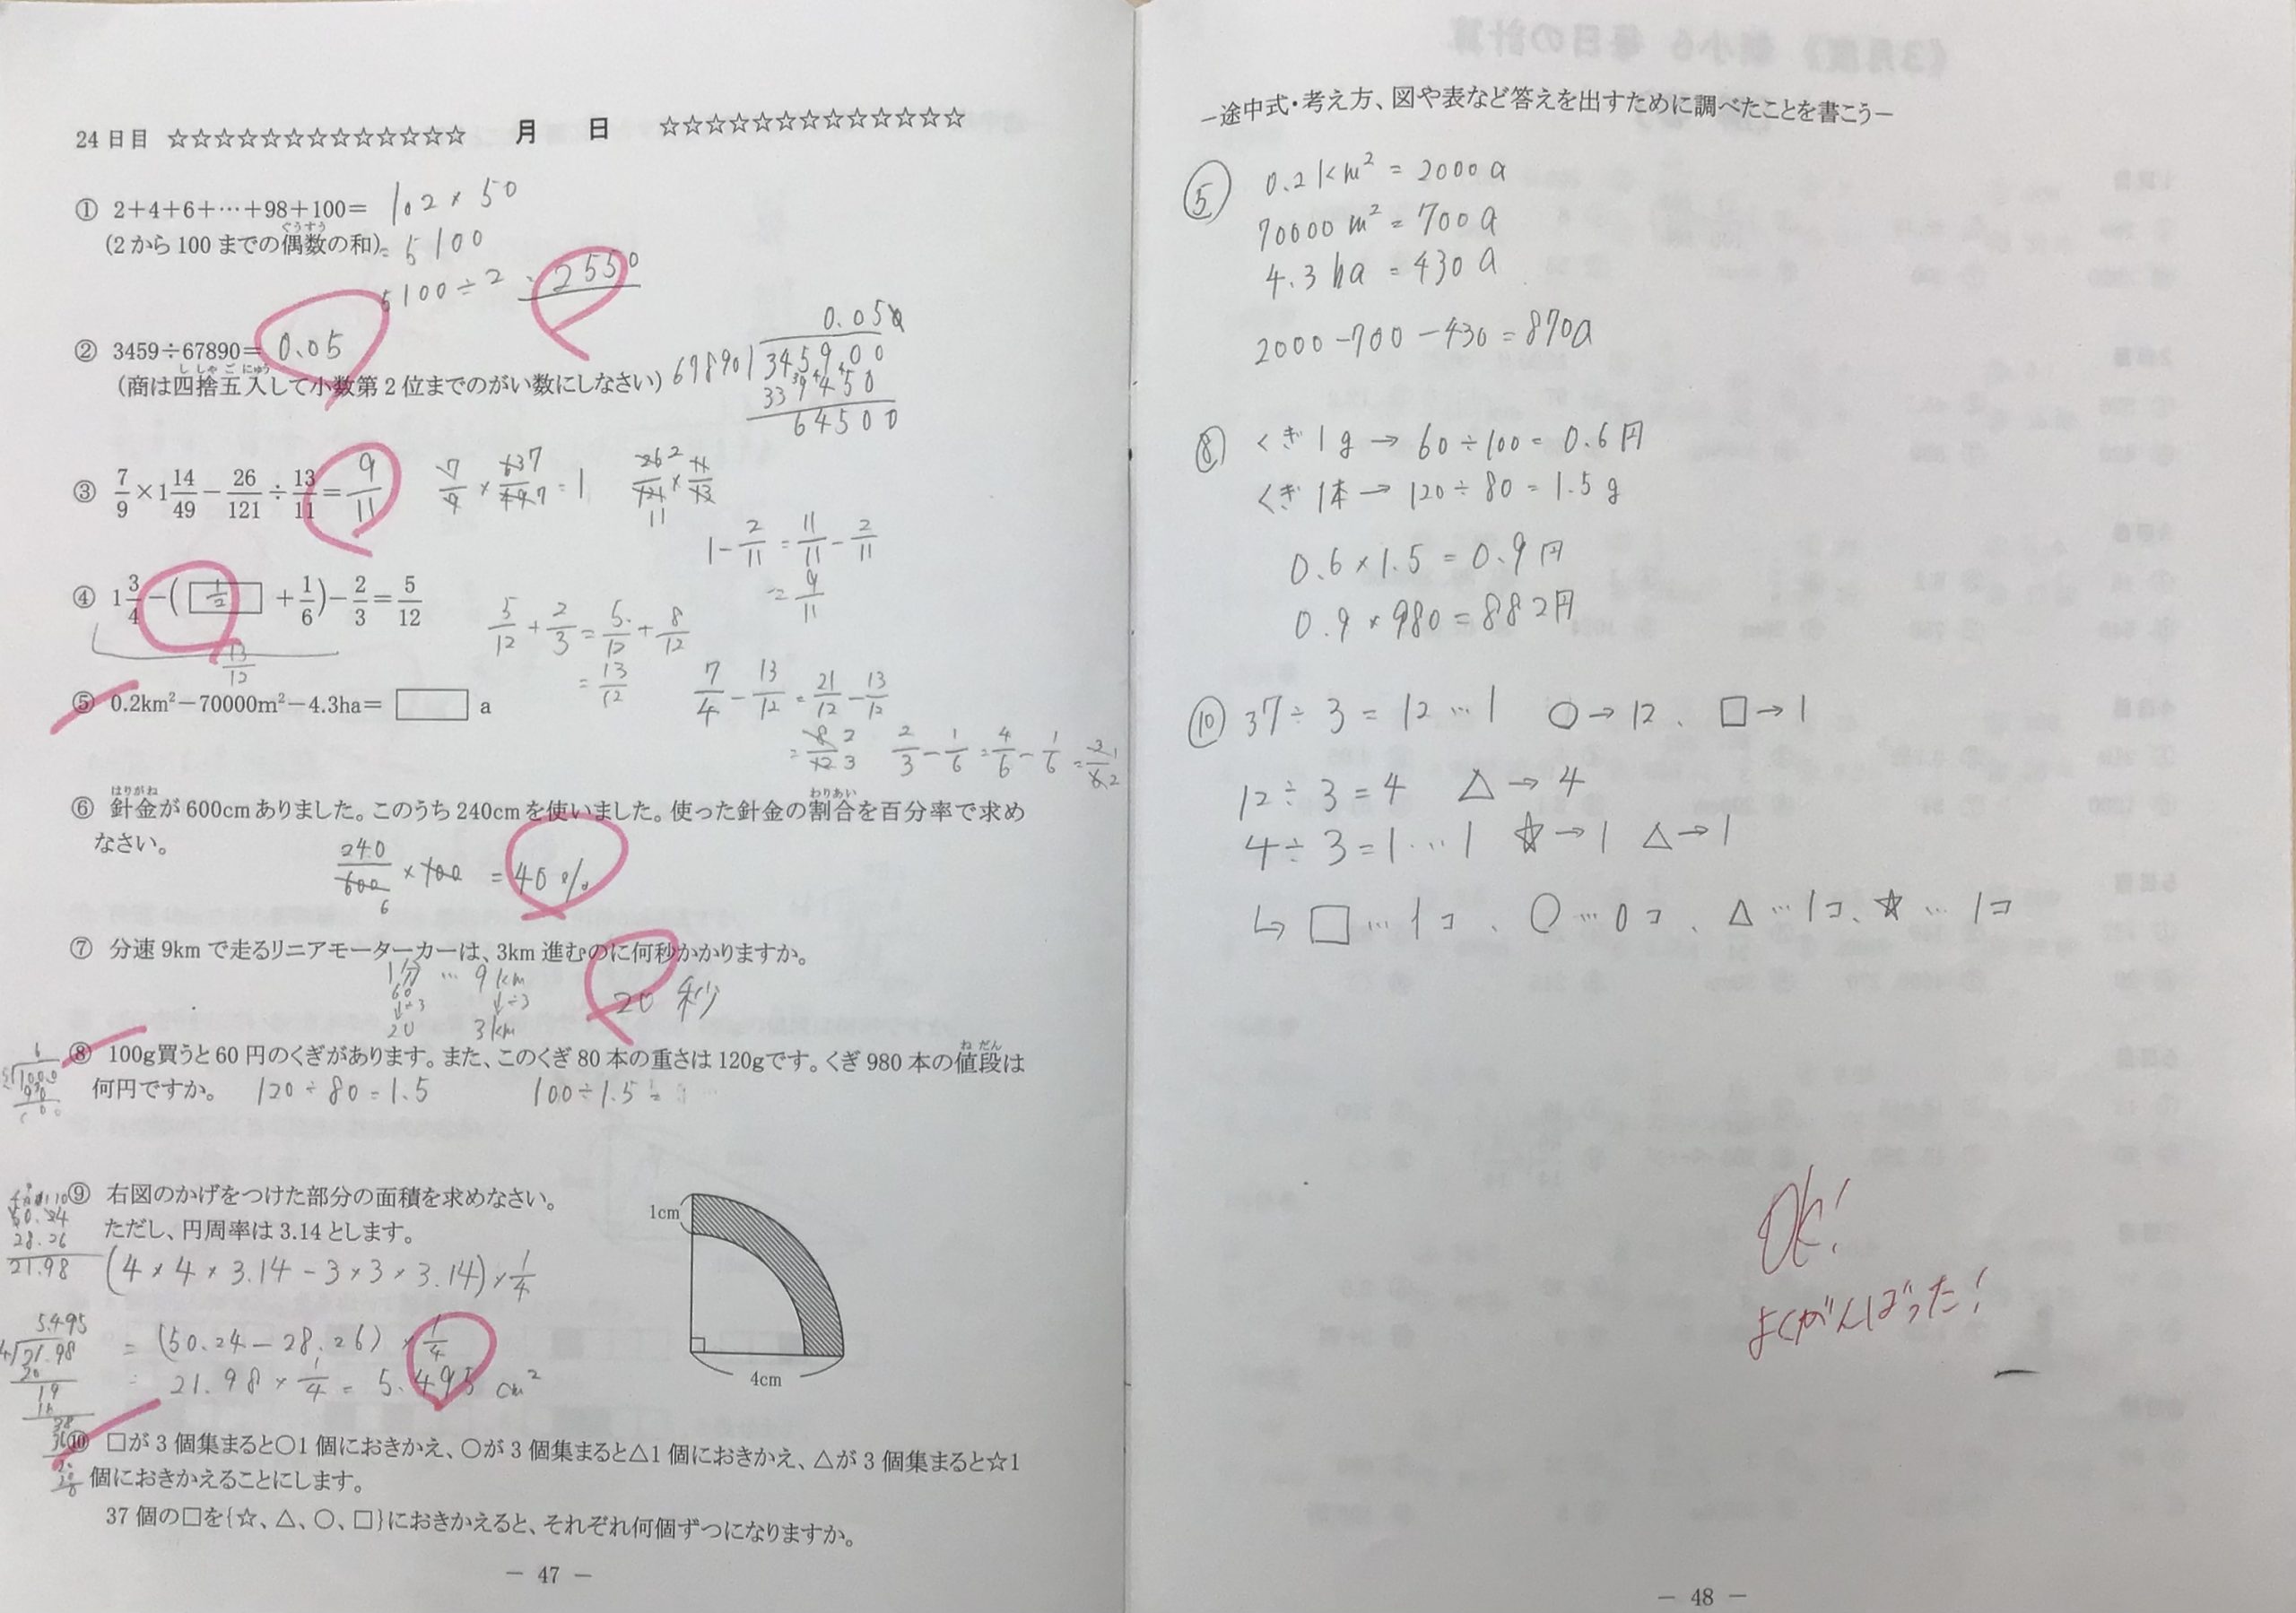 24日目 ☆☆☆☆☆☆☆☆☆☆☆☆☆ 月 日 ☆☆☆☆☆☆☆☆☆☆☆☆☆
① 2+4+6+…+98+100= 102×50
(2から100までの偶数の和) = 5100
ぐうすう
5100÷2 = 2550
② 3459÷67890= 0.05
(商は四捨五入して小数第2位までのがい数にしなさい)
し しゃ ご にゅう
0.050
67890 345900
339450
64500
③ 7/9×1 14/49−26/121÷13/11= 9/11
7/9 × 63 7/49 7 = 1 26 2/121 11 × 11/13
1−2/11 = 11/11−2/11
= 9/11
④ 1 3/4−( 1/2 +1/6)−2/3=5/12
13/12
5/12+2/3=5/12+8/12
=13/12
7/4−13/12=21/12−13/12
=8 2/12 3 2/3−1/6=4/6−1/6=3 1/6 2
⑤ 0.2km²−70000m²−4.3ha= □ a
⑥ 針金が600cmありました。このうち240cmを使いました。使った針金の割合を百分率で求め
はりがね わりあい
なさい。
240/600 6 ×100 = 40%
⑦ 分速9kmで走るリニアモーターカーは、3km進むのに何秒かかりますか。
1分 … 9km
60
↓÷3 ↓÷3
20 3km
20 秒
⑧ 100g買うと60円のくぎがあります。また、このくぎ80本の重さは120gです。くぎ980本の値段は
ね だん
何円ですか。 120÷80=1.5 100÷1.5=
⑨ 右図のかげをつけた部分の面積を求めなさい。
ただし、円周率は3.14とします。
50.24
28.26
21.98
(4×4×3.14−3×3×3.14)×1/4
= (50.24−28.26)×1/4
= 21.98×1/4= 5.495 cm²
5.495
4 21.98
20
19
16
38
36
20
20
1cm
4cm
⑩ □が3個集まると○1個におきかえ、○が3個集まると△1個におきかえ、△が3個集まると☆1
個におきかえることにします。
37個の□を{☆、△、○、□}におきかえると、それぞれ何個ずつになりますか。
— 47 —
—途中式・考え方、図や表など答えを出すために調べたことを書こう—
⑤ 0.2km² = 2000a
70000m² = 700a
4.3ha = 430a
2000−700−430=870a
⑧ くぎ1g → 60÷100=0.6円
くぎ1本 → 120÷80=1.5g
0.6×1.5=0.9円
0.9×980=882円
⑩ 37÷3=12…1 ○→12、□→1
12÷3=4 △→4
4÷3=1…1 ☆→1 △→1
↳ □…1コ、○…0コ、△…1コ、☆…1コ
OK!
よくがんばった!
— 48 —